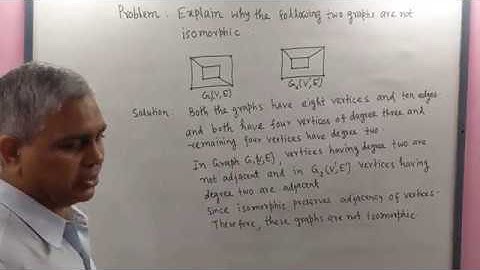 Problem: Explain why the following two graphs are not
isomorphic
G₁(V,E) G₂(V',E')
Solution Both the graphs have eight vertices and ten edges
and both have four vertices of dagree three and
remaining four vertices have degree two
In Graph G₁(V,E) vertices having degree two are
not adjacent and in G₂(V',E') vertices having
degree two are adjacent
Since isomorphic preserves adjacency of vertices.
Therefore, these graphs are not Isomorphic